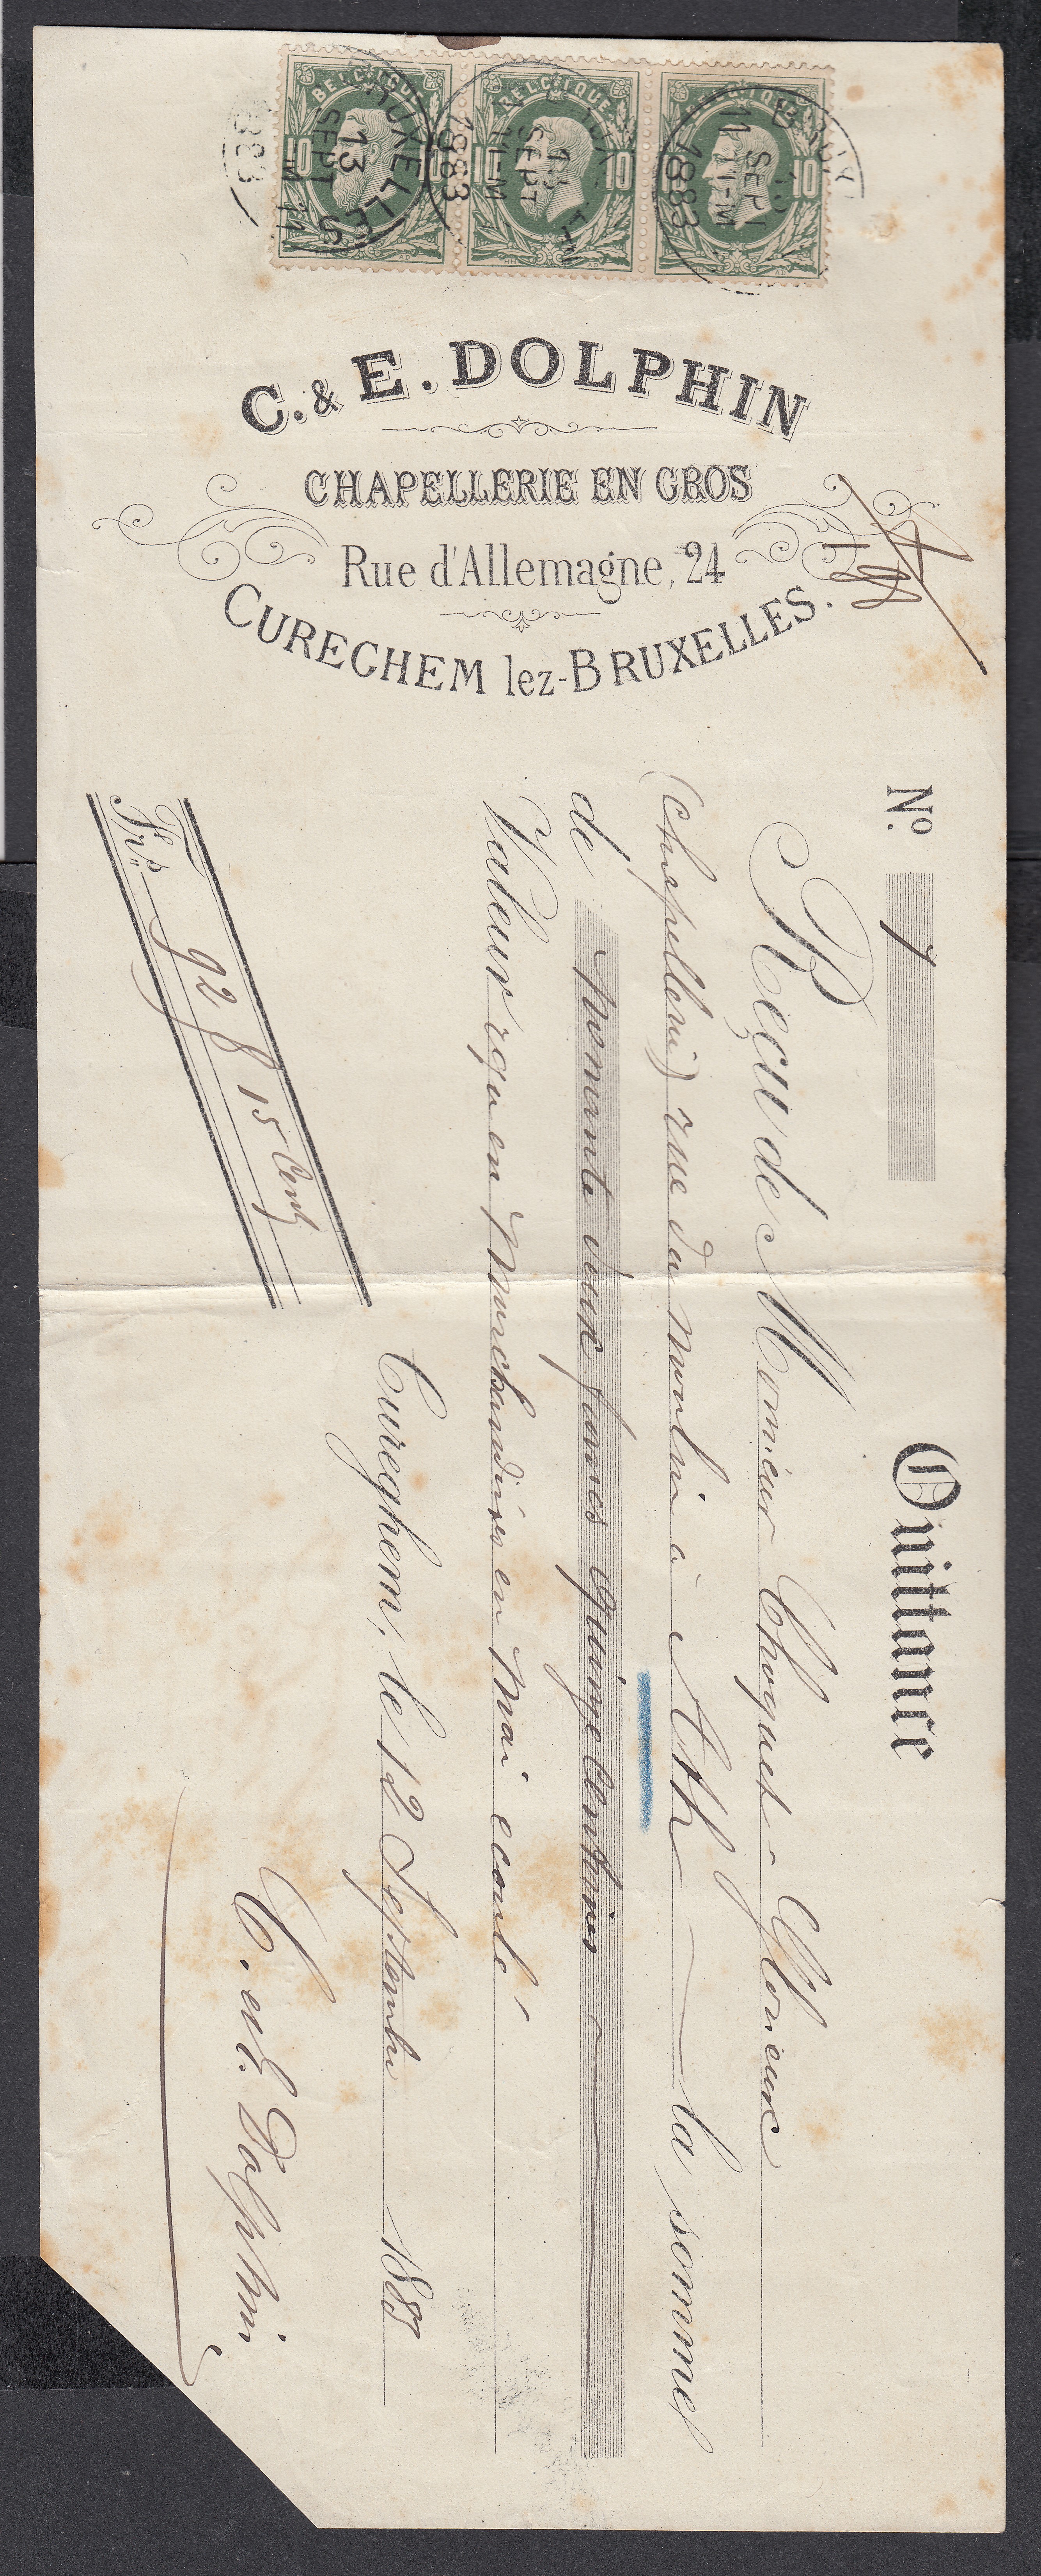 BELGIQUE BELGIQUE BELGIQUE
10 10 10 10
BRUXELLES
13
SEPT
11-M
1883
C. & E. DOLPHIN
CHAPELLERIE EN GROS
Rue d'Allemagne, 24
CUREGHEM lez-BRUXELLES.
188
Nº 7
Quittance
Reçu de Monsieur Choquet
(chapellerie) rue du moulin à Ath la somme
de Nonante deux francs quinze Centimes
Valeur reçu en Marchandises en Mai écoulé
Cureghem, le 12 Septembre 1883
Frs. 92 f 15 Cent
C. et E. Dolphin